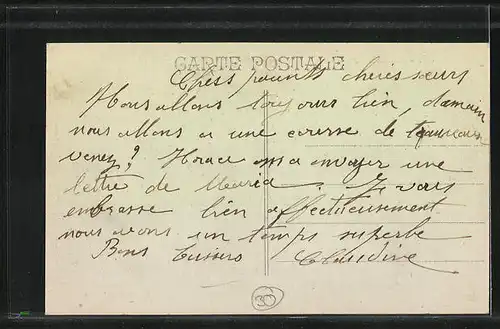 CARTE POSTALE
Chèss parents chères sœurs
Nous allons toujours bien, demain
nous allons a une course de taureaux
venez? Horace m a envoyer une
lettre de . Je vous
embrasse bien affectueusement
nous avons un temps superbe
Bons baisers Claudine
30